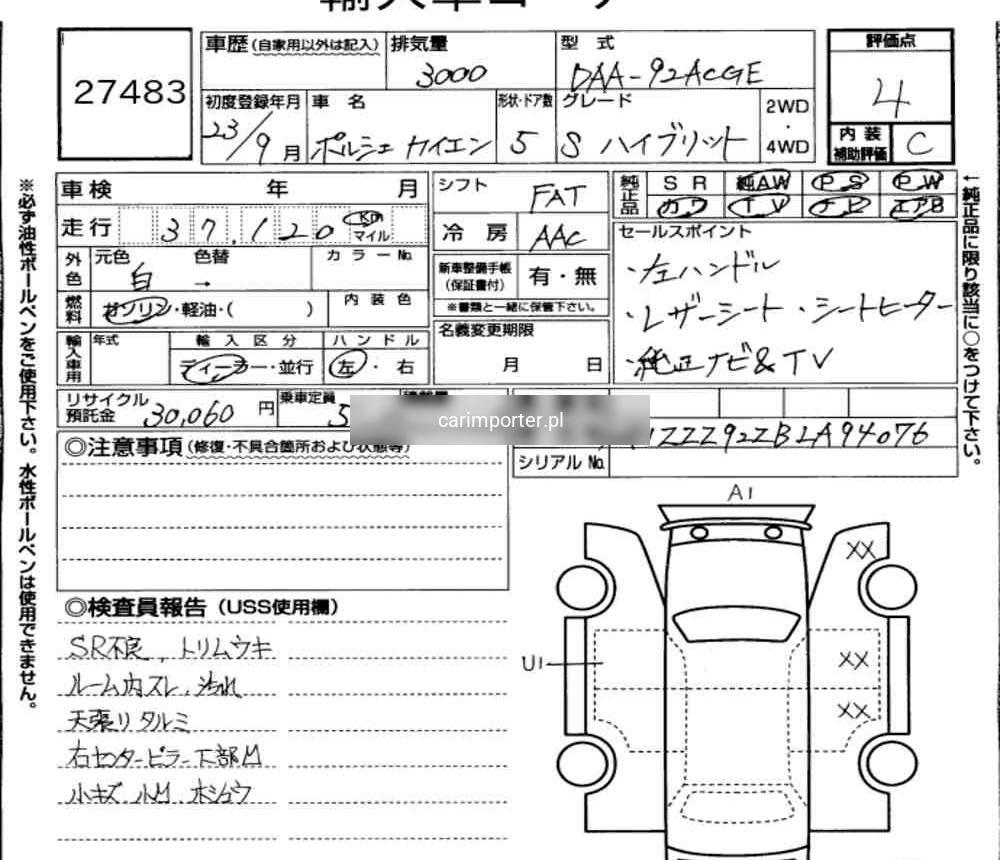 輸入車コーナー
27483
車歴(自家用以外は記入) 排気量 3000 型式 DAA-92ACGE
初度登録年月 23/9月 車名 ポルシェ カイエン 形状・ドア数 5 グレード S ハイブリット 2WD・4WD
評価点 4
内装補助評価 C
車検 年 月
走行 37,120 Km マイル
外色 元色 白 色替 → カラーNo.
燃料 ガソリン・軽油・( ) 内装色
輸入車用 年式 輸入区分 ディーラー・並行 ハンドル 左・右
リサイクル預託金 30,060円 乗車定員 5
シフト FAT
冷房 AAC
新車整備手帳(保証書付) 有・無
※書類と一緒に保管下さい。
名義変更期限
月 日
純正品 SR 純AW PS PW
カワ TV ナビ エアB
セールスポイント
・左ハンドル
・レザーシート・シートヒーター
・純正ナビ&TV
carimporter.pl
ZZZ92ZBLA94076
シリアルNo.
◎注意事項(修復・不具合箇所および状態等)
◎検査員報告(USS使用欄)
SR不良、トリムウキ
ルーム内スレ、汚れ
天張りタルミ
右センターピラー下部M
小キズ 小M ホシュウ
A1
XX
U1
XX
XX
※必ず油性ボールペンをご使用下さい。水性ボールペンは使用できません。
←純正品に限り該当に○をつけて下さい。